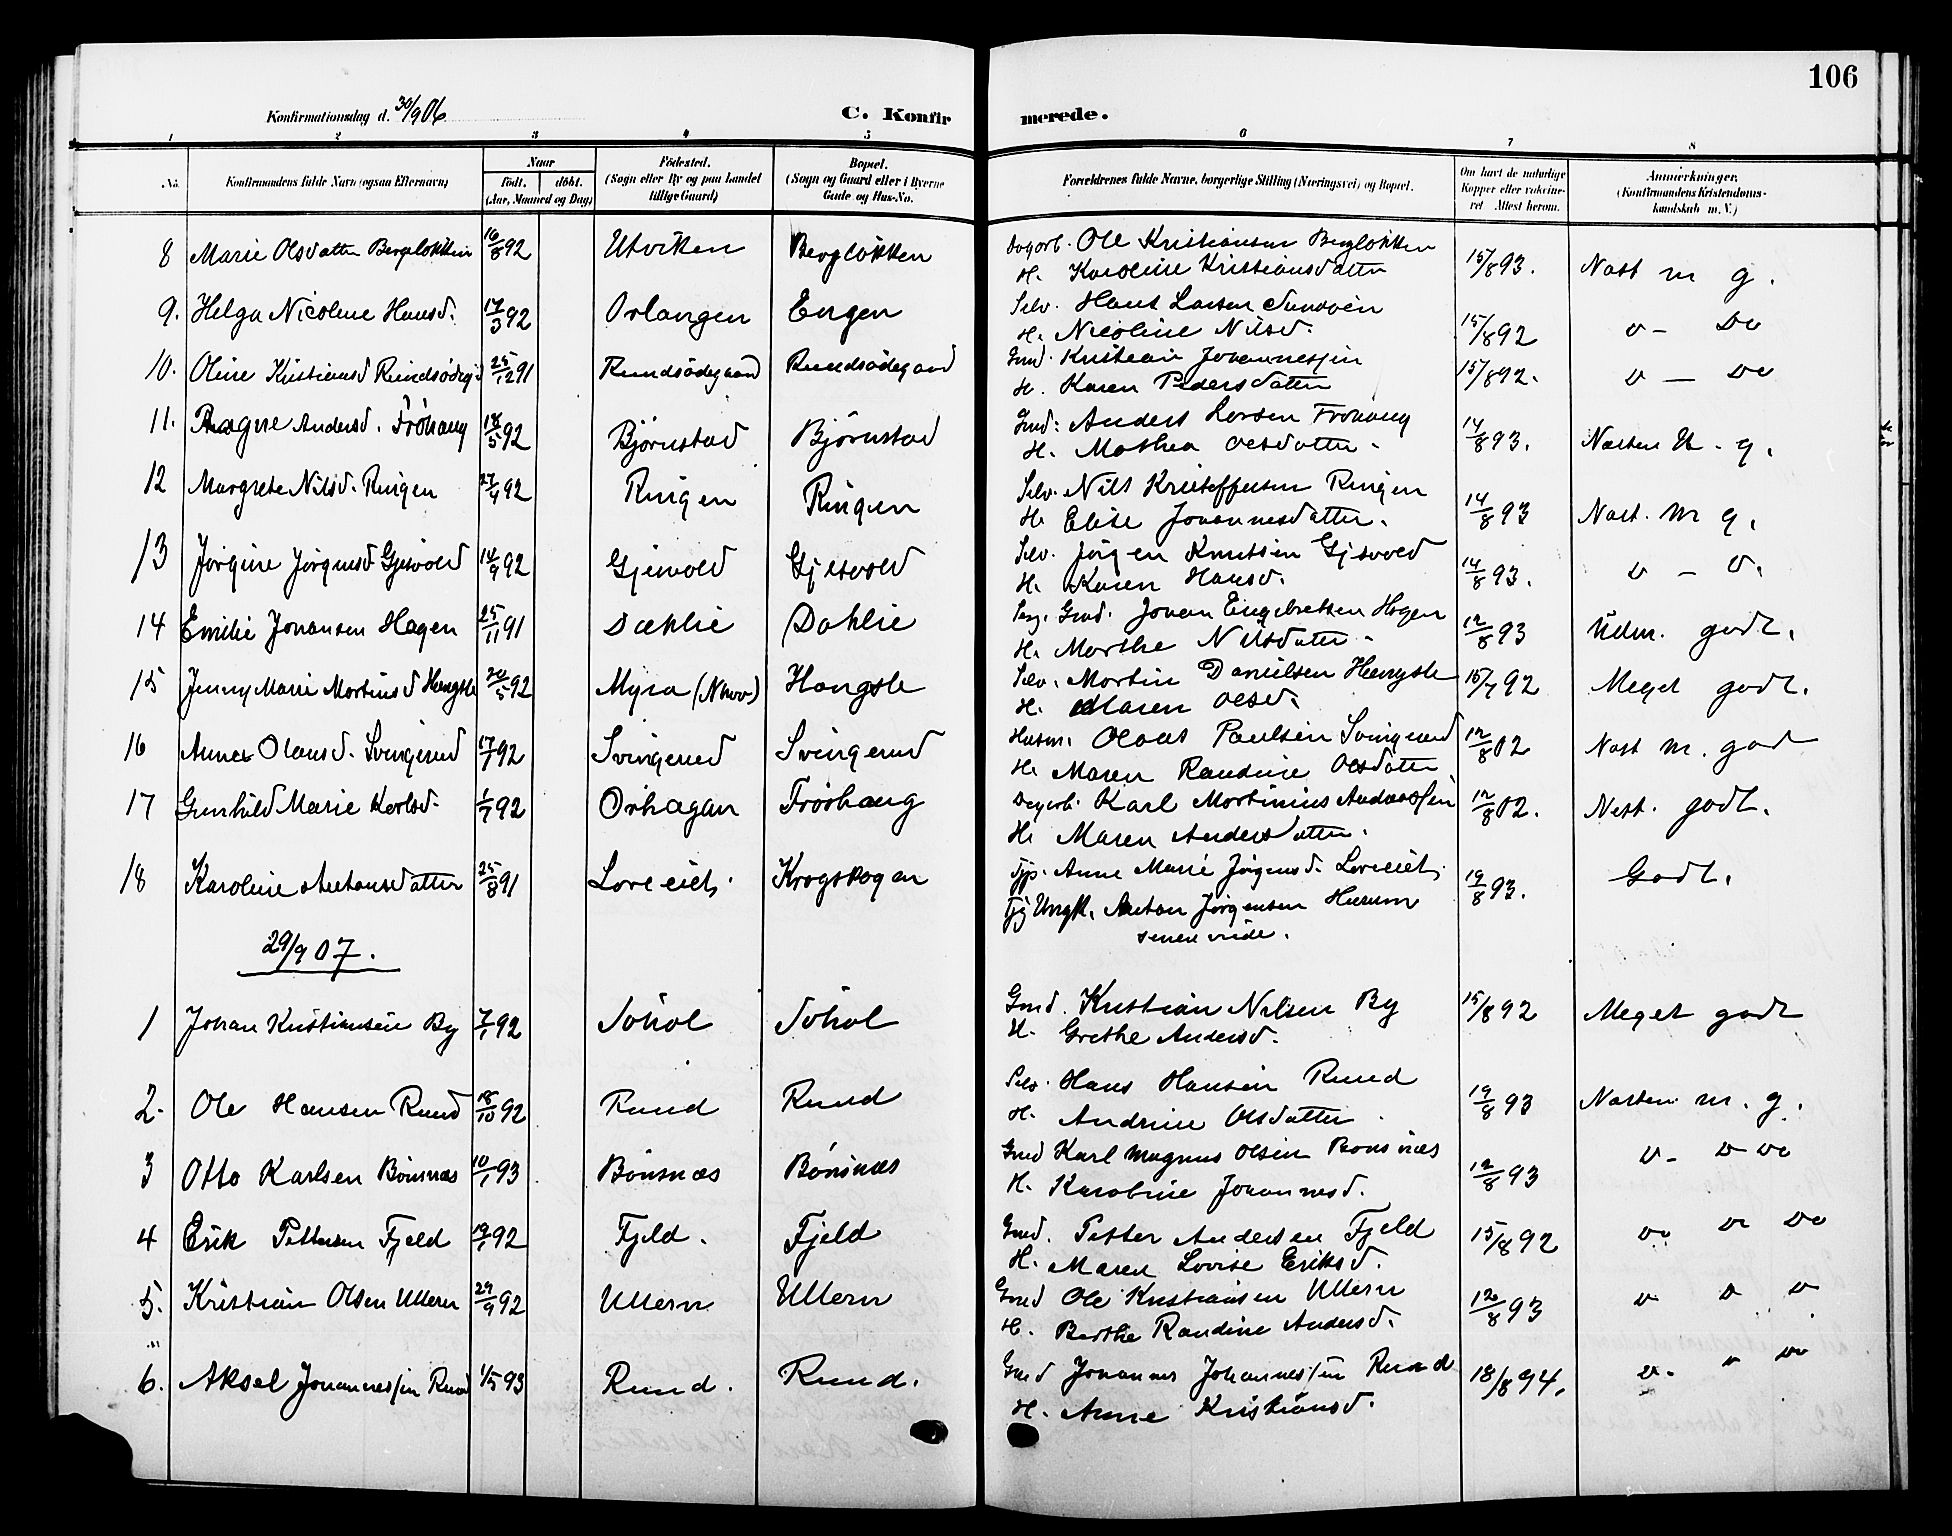 106
Konfirmationsdag d. 30/9 06
C. Konfirmerede.
1 2 3 4 5 6 7 8
No.
Konfirmandens fulde Navn (ogsaa Efternavn)
Naar
født. døbt.
(Aar, Maaned og Dag)
Fødested.
(Sogn eller By og paa Landet tillige Gaard)
Bopæl.
(Sogn og Gaard eller i Byerne Gade og Hus-No.
Forældrenes fulde Navne, borgerlige Stilling (Næringsvei) og Bopæl.
Om havt de naturlige Kopper eller vakcineret. Attest herom.
Anmærkninger.
(Konfirmandens Kristendomskundskab m. V.)
8 Marie Olsdatter Bergløkken 16/8 92 Utviken Bergløkken Dagarb. Ole Kristiansen Bergløkken 15/8 93. Næst m g.
H. Karoline Kristiansdatter
9. Helga Nicoline Hansd. 17/3 92 Orlangen Engen Selv. Hans Larsen 15/8 92 v - Do
H. Nicoline Nilsd.
10. Oline Kristiansd Rundsødegd 25/12 91 Rundsødegaard Rundsødegaard Gmd. Kristian Johannessen 15/8 92. v — Do
H. Karen Pedersdatter
11. Ragne Andersd. Frøhaug 18/5 92 Bjørnstad Bjørnstad Gmd. Anders Larsen Frøhaug 14/8 93. Næsten M. g.
H. Mathea Olsdatter
12 Margrete Nilsd. Ringen 27/4 92 Ringen Ringen Selv. Nils Kristoffersen Ringen 14/8 93 Næst. M g.
H. Elise Johannesdatter.
13 Jørgine Jørgensd Gjesvold 14/9 92 Gjesvold Gjesvold Selv. Jørgen Knutsen Gjesvold 14/8 93. v - v.
H. Karen Hansd.
14 Emilie Johansen Hagen 25/11 91 Dæhlie Dahlie Gmd. Johan Engebretsen Hagen 12/8 93 Udm. godt.
H. Marthe Nilsdatter
15 Jenny Marie Martinsd Hongsle 20/5 92 Myra (Norv) Hongsle Selv. Martin Danielsen Hongsle 15/7 92 Meget godt.
H. Maren Olsd.
16 Anna Olausd. Svingerud 17/7 92 Svingerud Svingerud Husm. Olaus Paulsen Svingerud 12/8 02 Næst M. god
H. Maren Randine Olsdatter
17 Gunhild Marie Karlsd. 1/7 92 Ørhagan Frøshaug Dagarb. Karl Martinius Anderssen 12/8 02. Nest. godt.
H. Maren Andersdatter.
18 Karoline Antonsdatter 25/8 91 Loreeiet. Krogskogen Tjp. Anne Marie Jørgensd. Loreeiet. 19/8 93. Godt.
Tj Ungk. Anton Jørgensen Hurum
29/9 07.
1 Johan Kristiansen By 7/1 92 Søhol Søhol Gmd. Kristian Nilsen By 15/8 92 Meget godt
H. Grethe Andersd.
2. Ole Hansen Rund 18/10 92 Rund Rund Selv. Hans Hansen Rund 19/8 93 Næsten m. g.
H. Andrine Olsdatter
3 Otto Karlsen Bønsnæs 10/1 93 Bønsnæs Bønsnæs Gmd Karl Magnus Olsen Bønsnæs 12/8 93 v - v Do
H. Karoline Johannesd.
4 Erik Pettersen Fjeld 19/1 92 Fjeld. Fjeld Gmd. Petter Andersen Fjeld 15/8 92 Do
H. Maren Lovise Eriksd.
5. Kristian Olsen Ullern 29/9 92 Ullern Ullern Gmd Ole Kristiansen Ullern 12/8 93 v v v
H. Berthe Randine Andersd.
6. Aksel Johannessen Rund 1/5 93 Rund. Rund. Gmd Johannes Johannessen Rund 18/8 94. v. v Do
H. Anne Kristiansd.